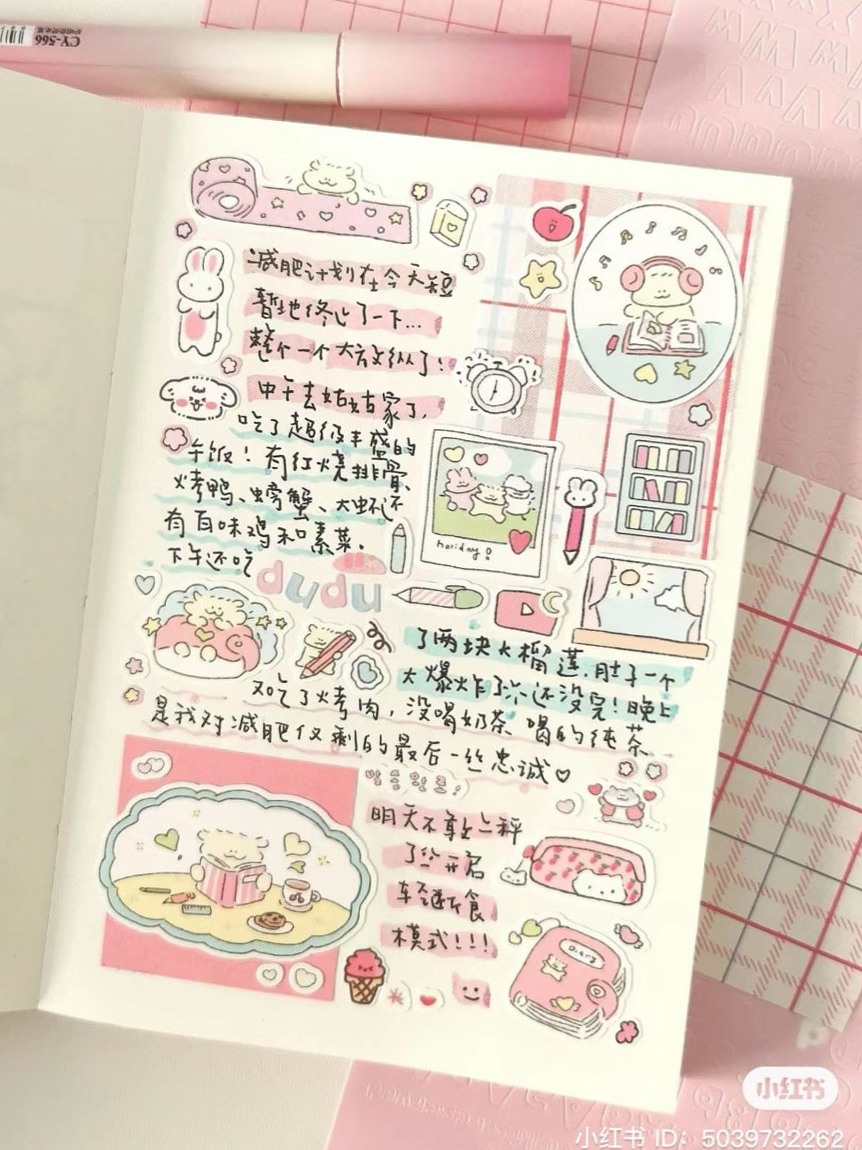 CY-566
减肥计划在今天短
暂地终止了一下...
整个一个大放纵了!
中午去姑姑家了,
吃了超级丰盛的
午饭!有红烧排骨、
烤鸭、螃蟹、大虾还
有百味鸡和素菜.
下午还吃
dudu
holiday!
了两块大榴莲,肚子一个
大爆炸了 还没完!晚上
又吃了烤肉,没喝奶茶 喝的纯茶
是我对减肥仅剩的最后一丝忠诚♡
明天不敢上秤
了 开启
轻断食
模式!!!
Diary
小红书
小红书 ID: 5039732262